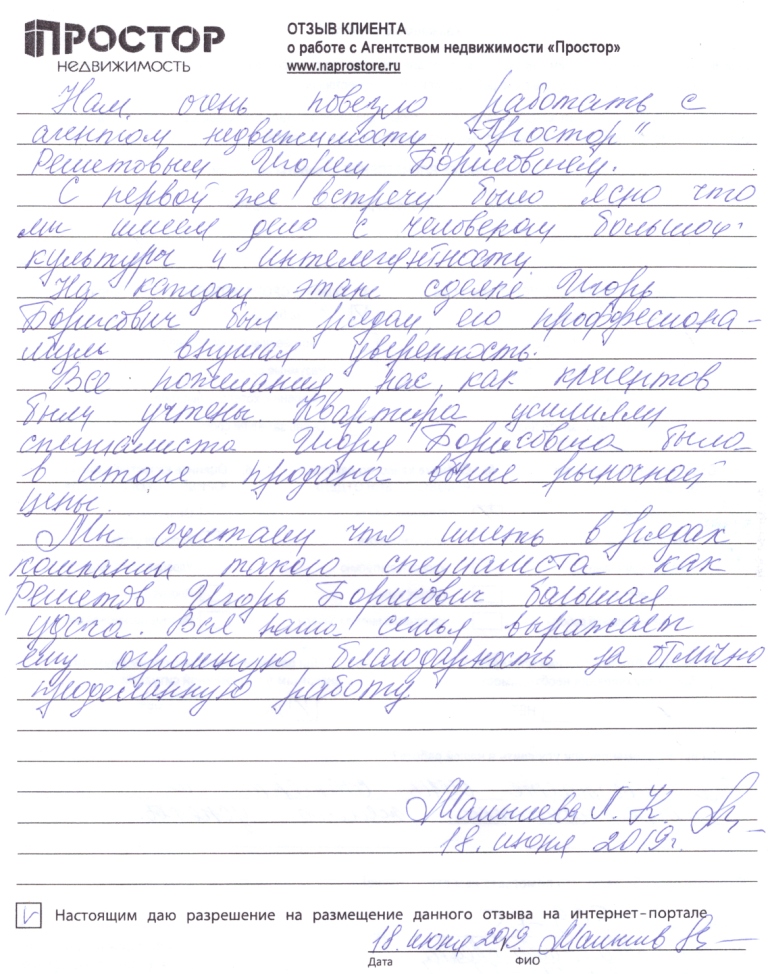 ПРОСТОР
НЕДВИЖИМОСТЬ
ОТЗЫВ КЛИЕНТА
о работе с Агентством недвижимости «Простор»
www.naprostore.ru
Нам очень повезло работать с
агентом недвижимости "Простор"
Решетовым Игорем Борисовичем.
С первой же встречи было ясно что
мы имеем дело с человеком большой
культуры и интелегентности
На каждом этапе сделке Игорь
Борисович был рядом, его проффесиона-
лизм внушал уверенность.
Все пожелания нас, как клиентов
были учтены. Квартира усилиями
специалиста Игоря Борисовича была
в итоге продана выше рыночной
цены.
Мы считаем что иметь в рядах
компании такого специалиста как
Решетов Игорь Борисович большая
удача. Вся наша семья выражает
ему огромную благодарность за отлично
проделанную работу
Малышева Л. К.
18. июня 2019г.
Настоящим даю разрешение на размещение данного отзыва на интернет-портале
18. июня 2019.
Дата ФИО